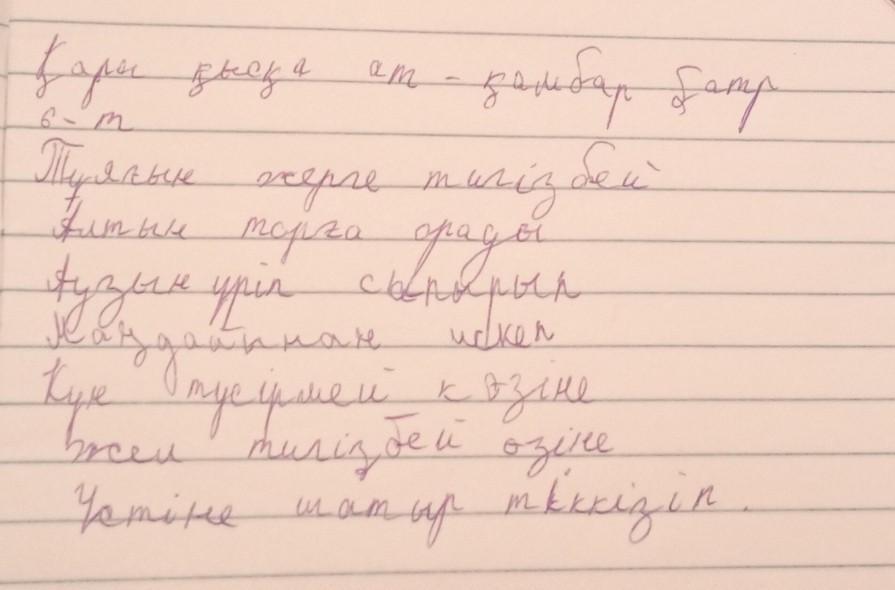 Қары қысқа ат - қамбар батр
6-т
Тұяғын жерге тигізбей
Алтын торға орады
Аузын үріп сыпырып
Маңдайынан искеп
Күн түсірмей көзіне
Жел тигізбей өзіне
Үстіне шатыр тіккізіп.